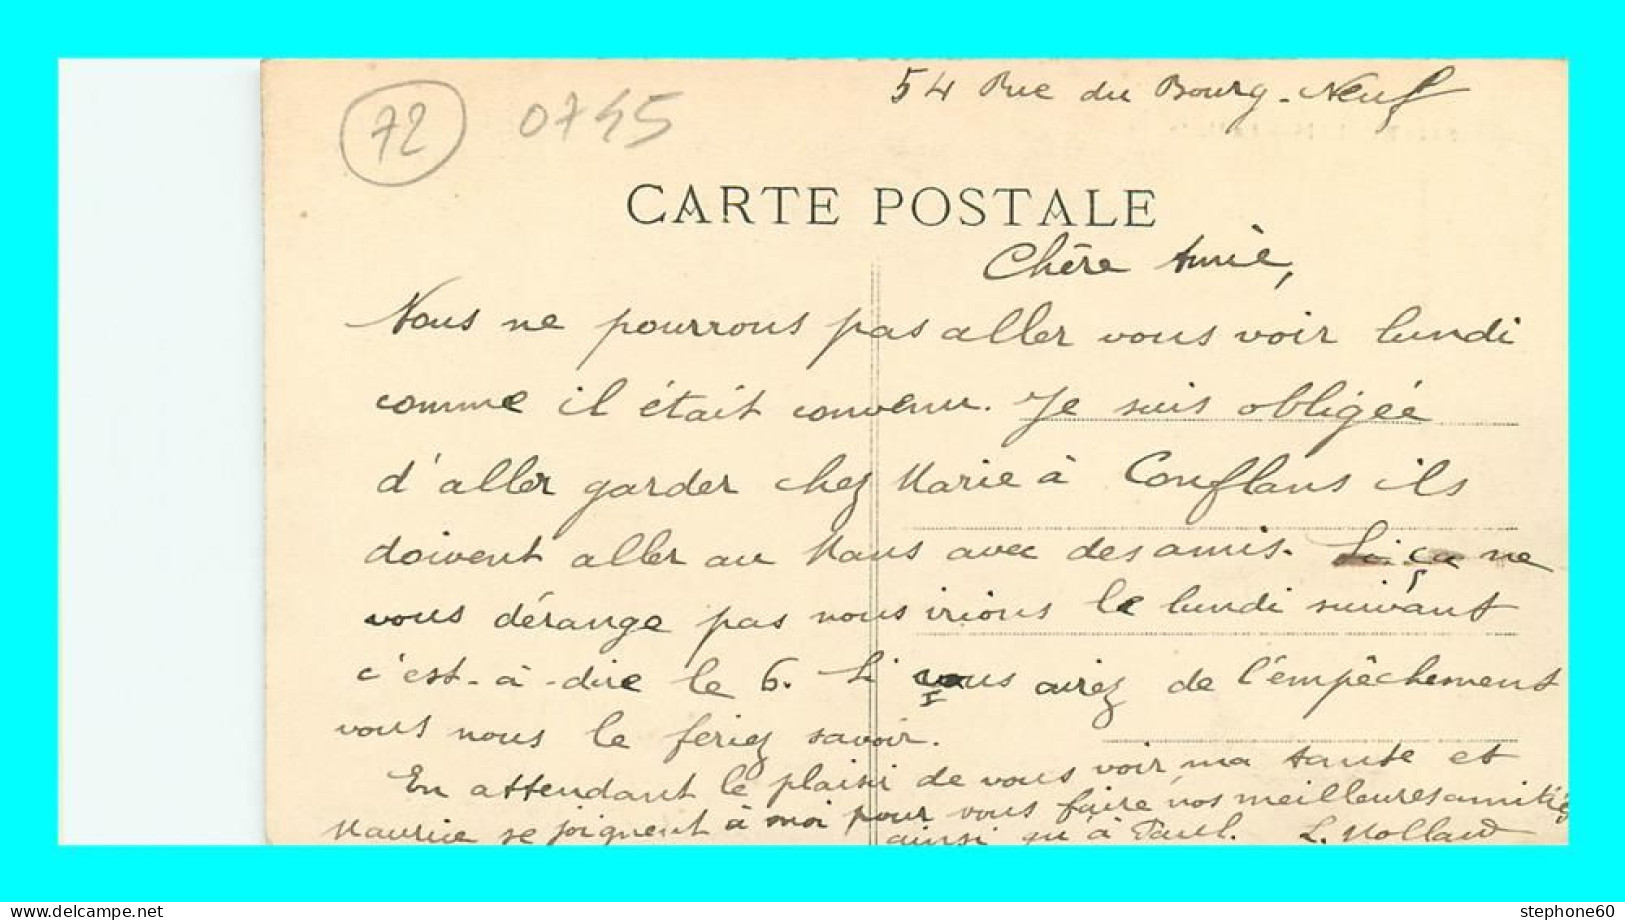 54 Rue du Bourg-Neuf
72 0745
CARTE POSTALE
Chère Amie,
Nous ne pourrons pas aller vous voir lundi
comme il était convenu. Je suis obligée
d'aller garder chez Marie à Conflans ils
doivent aller au Mans avec des amis. Si ça ne
vous dérange pas nous irions le lundi suivant
c'est-à-dire le 6. Si vous airez de l'empêchement
vous nous le feriez savoir.
En attendant le plaisir de vous voir, ma tante et
Maurice se joignent à moi pour vous faire nos meilleures amitiés
ainsi qu'à Paul. L. Rolland
stephone60